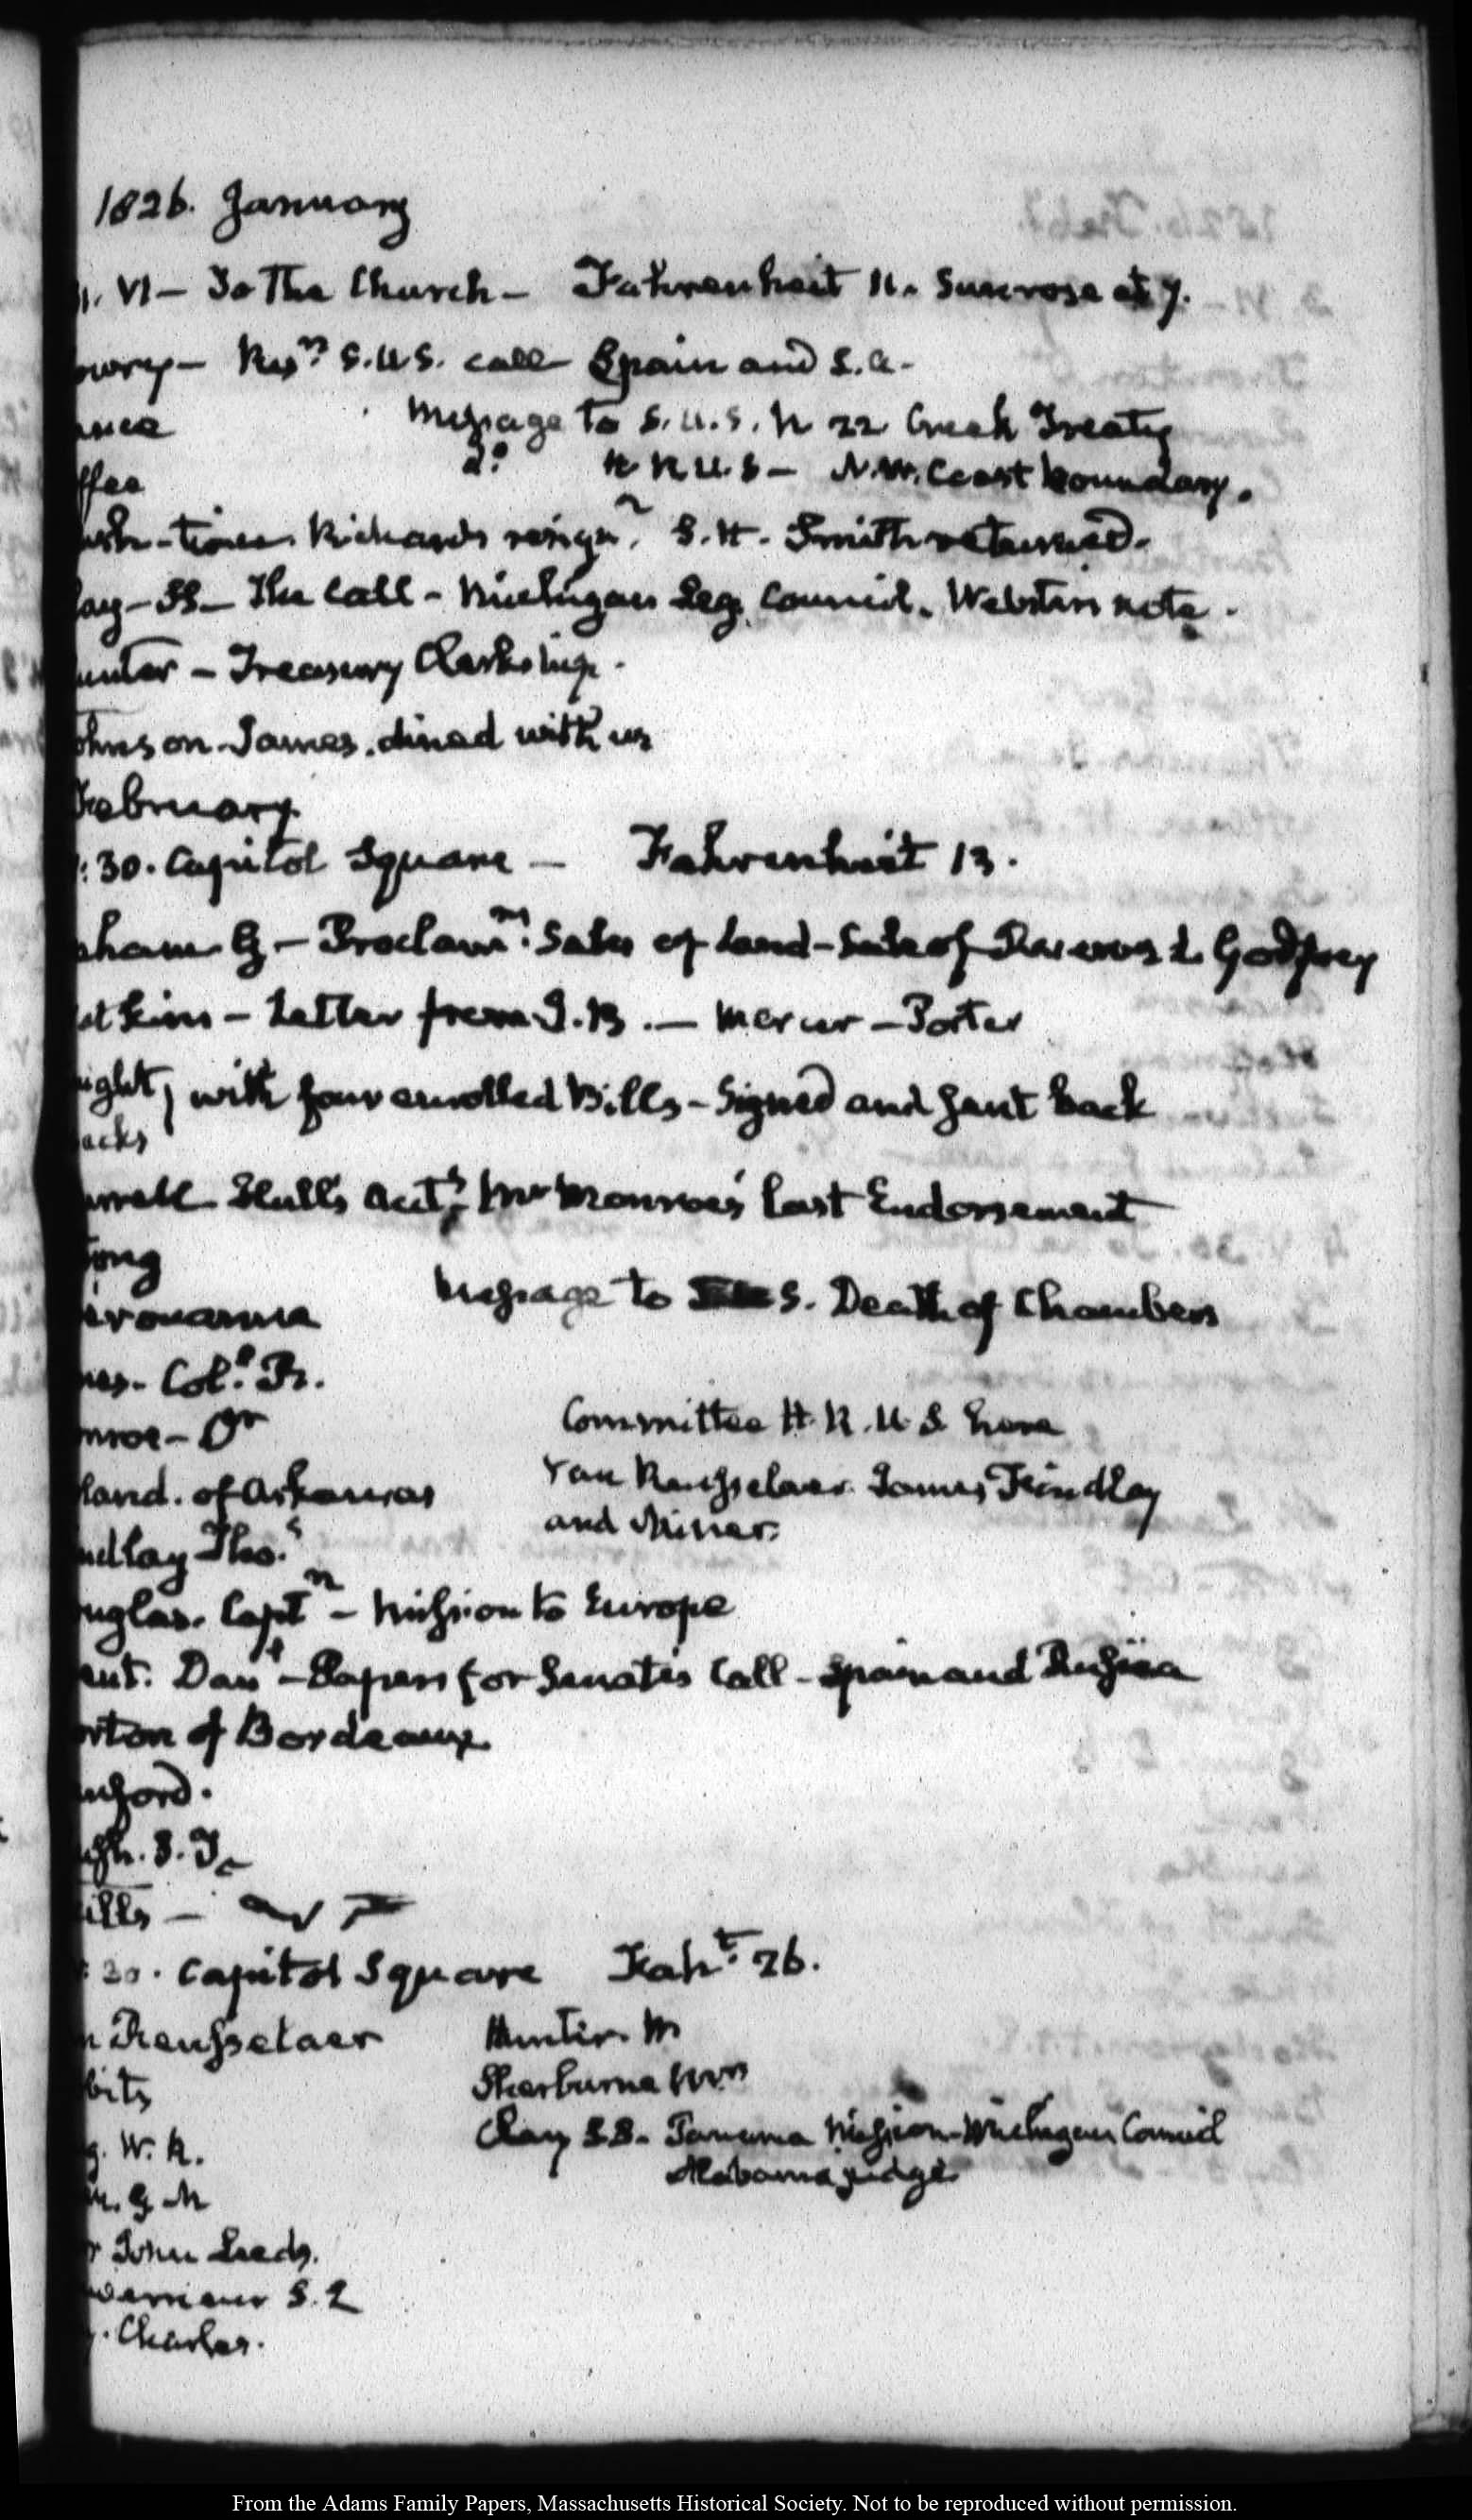 1826. January
VI — To the Church — Fahrenheit 11. Sun rose at 7.
owry — Res.n S.U.S. call Spain and S.A.
ance Message to S.U.S. N 22 Creek Treaty
ffee do. H.R.U.S — N.W. Coast boundary.
Richards resign.n S. H. Smith returned.
lay — SS — The Call — Michigan Leg. Council. Webster's note.
unter — Treasury Clerkship.
ohnson James. dined with us
February
:30. Capitol Square — Fahrenheit 13.
aham G — Proclam.ns Sales of Land — Sale of to Godfrey
atkins — Letter from J.B. — Mercer — Porter
ight, with four enrolled Bills — Signed and sent back
acks
Hull's Acct.s Mr Monroe's last Endorsement
ong
Message to S. Death of Chambers
nes. Col.o R.
nroe — Dr Committee H.R.U.S here
land. of Arkansas Van Rensselaer. James Findlay
and Miner.
ndlay Tho.s
uglas. Capt.n — Mission to Europe
ent. Danl — Papers for Senate's Call — Spain and Russia
rton of Bordeaux
nford.
ills —
30. Capitol Square Fah.t 26.
n Rensselaer Hunter. W
bits Sherburne
g. W. R. Clay S.S. Panama Mission — Michigan Council
Alabama judge
r John Leeds.
S. L
. Charles.
From the Adams Family Papers, Massachusetts Historical Society. Not to be reproduced without permission.